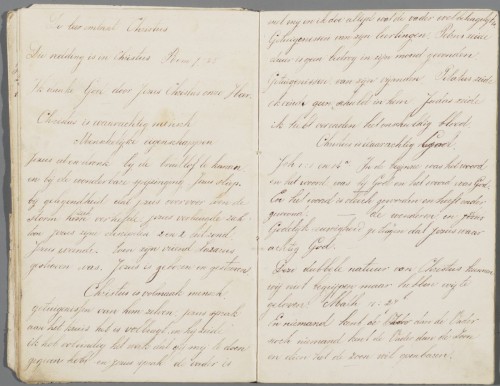 De twe naturen Christus
De middelaar is Christus Rom 7 25
Ik danke God door Jesus Christus onze Heer
Christus is waarachtig mensch
Menschelijke eigenschappen
Jesus at en dronk bij de bruiloft te kanaan
en bij de wonderbare spijziging Jesus sliep
bij gelegenheid dat jesus over voer toen de
storm hem verhief. jesus verheugde zich
Jesus weende. toen zijn vriend Lazarus
gestorven was, Jesus is geboren en gestorven
Christus is volmaakt mensch.
getuigenissen van hem zelven. jesus sprak
aan het kruis het is volbragt en hij zeide
Ik heb voleindig het werk dat gij mij te doen
gegeven hebt en jesus sprak de vader is
met mij en ik doe altijd wat de vader wel behagelijk is
Getuigenissen van zijn leerlingen. Petrus zeide
daar is geen bedrog in zijn mond gevonden
Getuigenissen van zijn vijanden Pilatus zeide
ik vind geen schuld in hem Judas zeide
ik heb verraden het onschuldig bloed.
Christus is waarachtig God.
Joh 1 1 en 14 In de beginne was het woord
en het woord was bij God en het woord was God
En het woord is vleesch geworden en heeft onder
gewoond. de wonderen en
Goddelijke waardigheid getuigen dat jesus waar
achtig God.
Deze dubbele natuur van Christus kunnen
wij niet begrijpen maar hebben wij te
gelooven Math 11. 27
En niemand kent de Zoon dan de Vader
noch niemand kent de Vader dan de Zoon
en dien het de zoon wil openbaren.